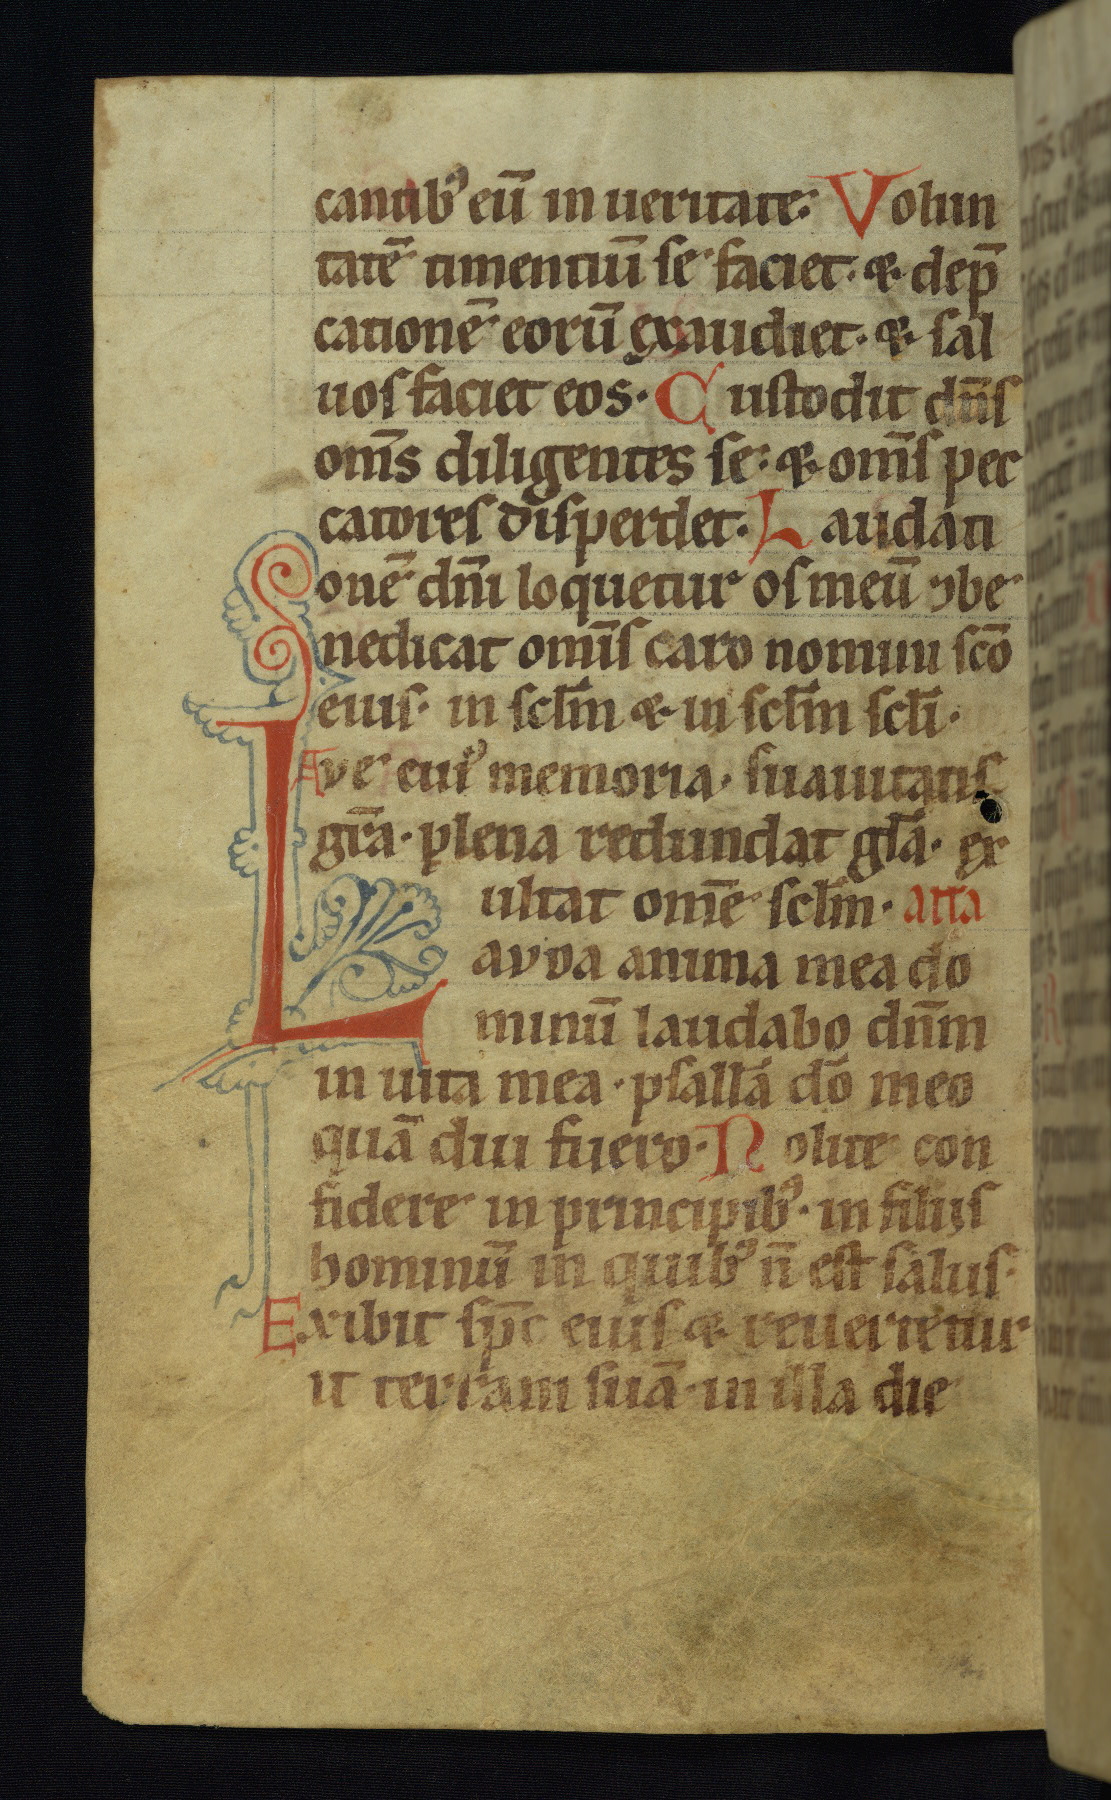 cantib᷒ eū in ueritate. Volun
tatē timentiū se faciet. & dep̄
cationē eorū exaudiet. & sal
uos faciet eos. Custodit dn̄s
om̄s diligentes se. & om̄s pec
catores disperdet. Laudati
onē dn̄i loquetur os meū ⁊ be
nedicat omīs caro nomini scō
eius. in sclm̄ & in sclm̄ sclī.
Ave eui᷒ memoria. suauitatis
gr̄a. plena redundat gl̄a. ex
ultat om̄e sclm̄. atta
Lauda anima mea do
minū laudabo dn̄m
in uita mea. psallā dō meo
quā diu fuero. Nolite con
fidere in principib᷒. in filiis
hominū in quib᷒ n̄ est salus.
Exibit sp̄c eius & reuertetur
it terram suā. in illa die